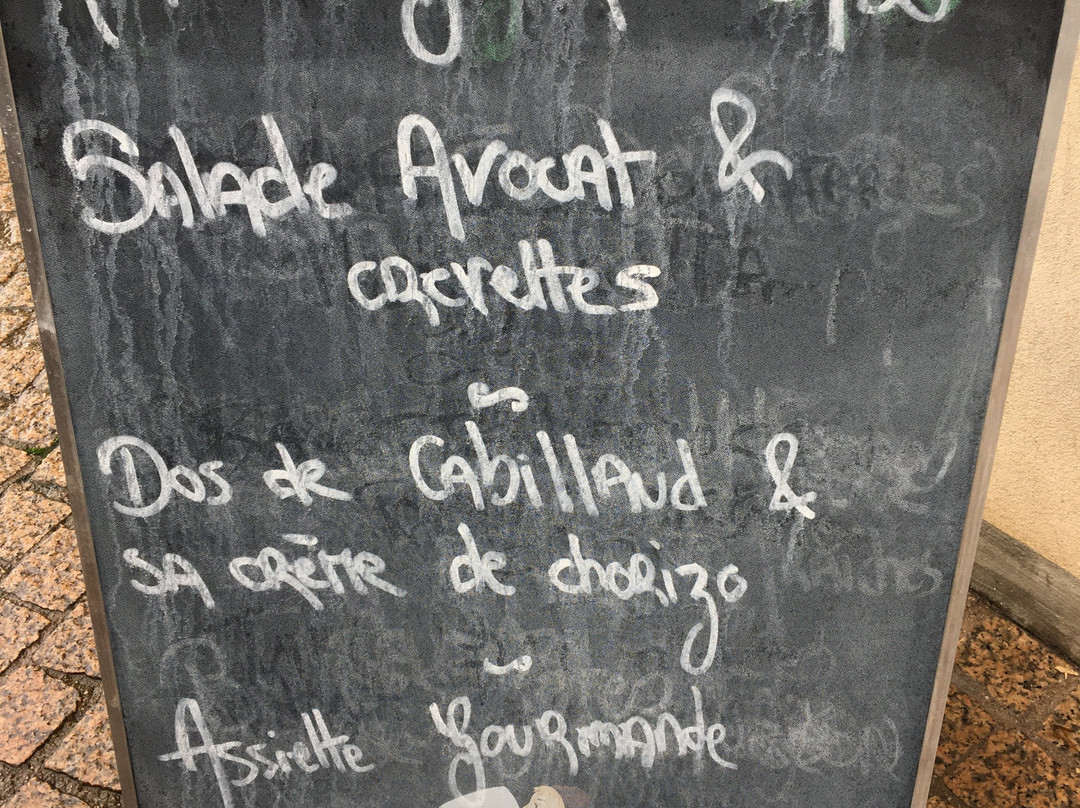 Salade Avocat &
crevettes
~
Dos de Cabillaud &
sa crème de chorizo
~
Assiette Gourmande